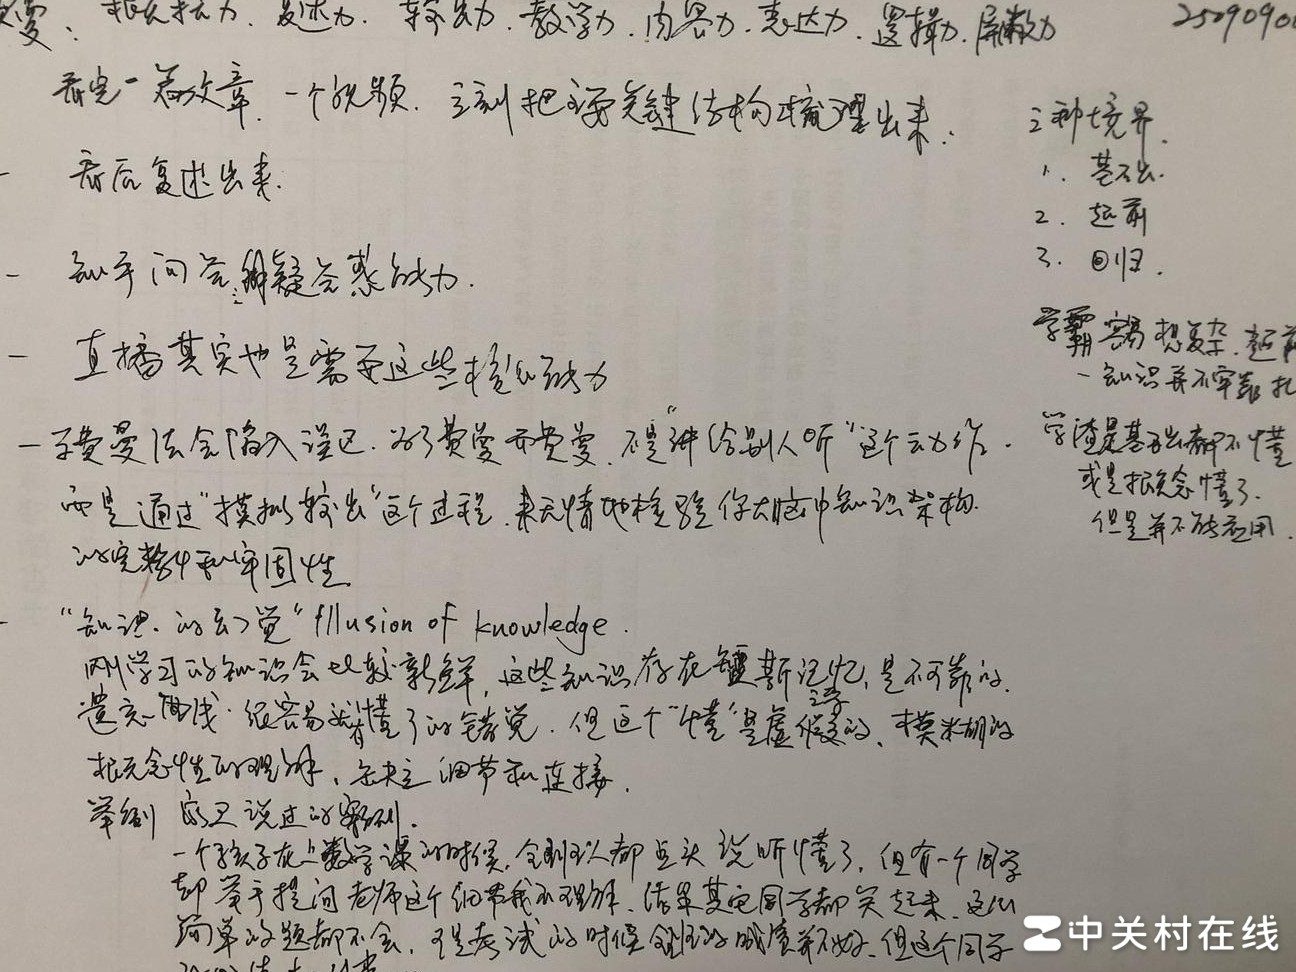 概括力、复述力、输出力、教学力、内容力、表达力、逻辑力、屏蔽力
250909
看完一篇文章、一个视频、立刻把主要关键结构梳理出来.
看后复述出来.
知乎问答,解疑答惑的能力.
直播其实也是需要这些核心能力
费曼法会陷入误区.为了费曼而费曼,不是"讲给别人听"这个动作.
而是通过"模拟输出"这个过程,来无情地检验你大脑中知识架构
的完整性和牢固性.
"知识的幻觉" illusion of knowledge.
刚学习的知识会比较新鲜,这些知识存在短期记忆,是不可靠的.
遗忘曲线.很容易就有懂了的错觉.但这个"懂"是虚假的、模糊的
概念性的理解,缺乏细节和连接.
举例 说过的案例.
一个孩子在上数学课的时候,全副班人都点头说听懂了,但有一个同学
却举手提问老师这个细节我不理解.结果其它同学都笑起来,这么
简单的题都不会,可是考试的时候全班的成绩并不好,但这个同学
三种境界.
1. 基不出.
2. 超前
3. 回归.
学霸容易想复杂.超前
-知识并不牢靠扎
学渣是基不出都不懂
或是概念懂了.
但是并不能应用.
中关村在线